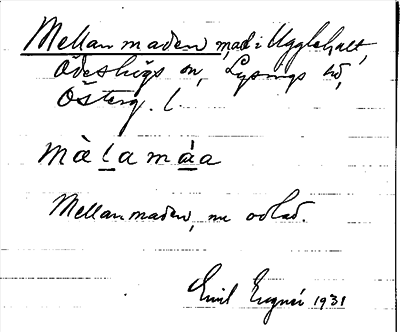 Mellanmaden, mad i Ugglehult,
Ödeshögs sn, Lysings hd,
Österg. l.
mälamáa
Mellanmaden, nu odlad.
Emil 1931